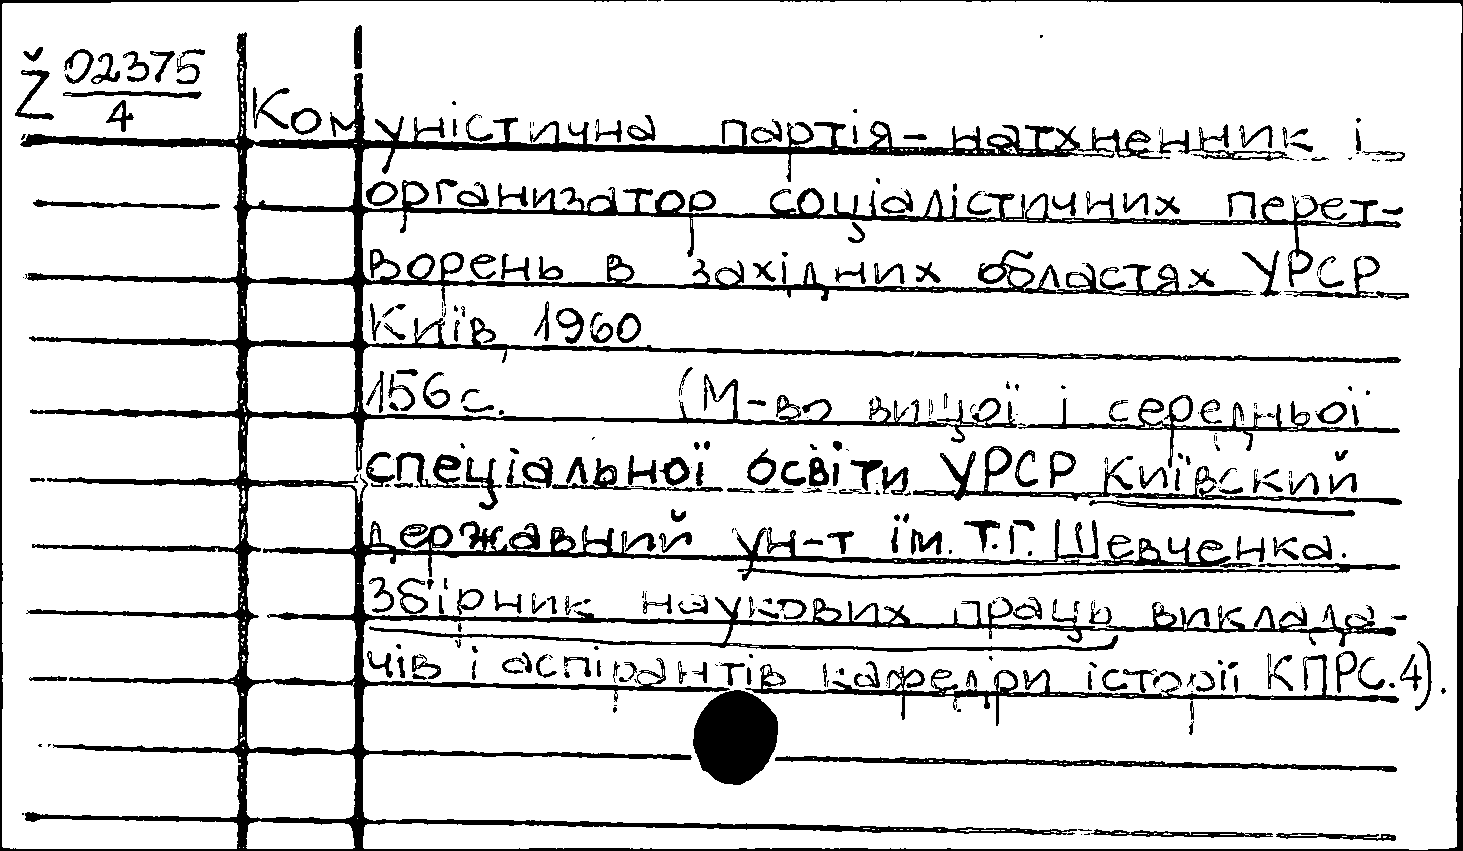 Ž 02375
4
Комуністична партія-натхненник і
организатор соціалістичних перет-
ворень в західних областях УРСР
Київ, 1960.
156 с. (М-во вищої і середньої
спеціальної освіти УРСР Київский
державний ун-т їм. Т.Г. Шевченка.
Збірник наукових праць виклада-
чів і аспірантів кафедри історії КПРС. 4).